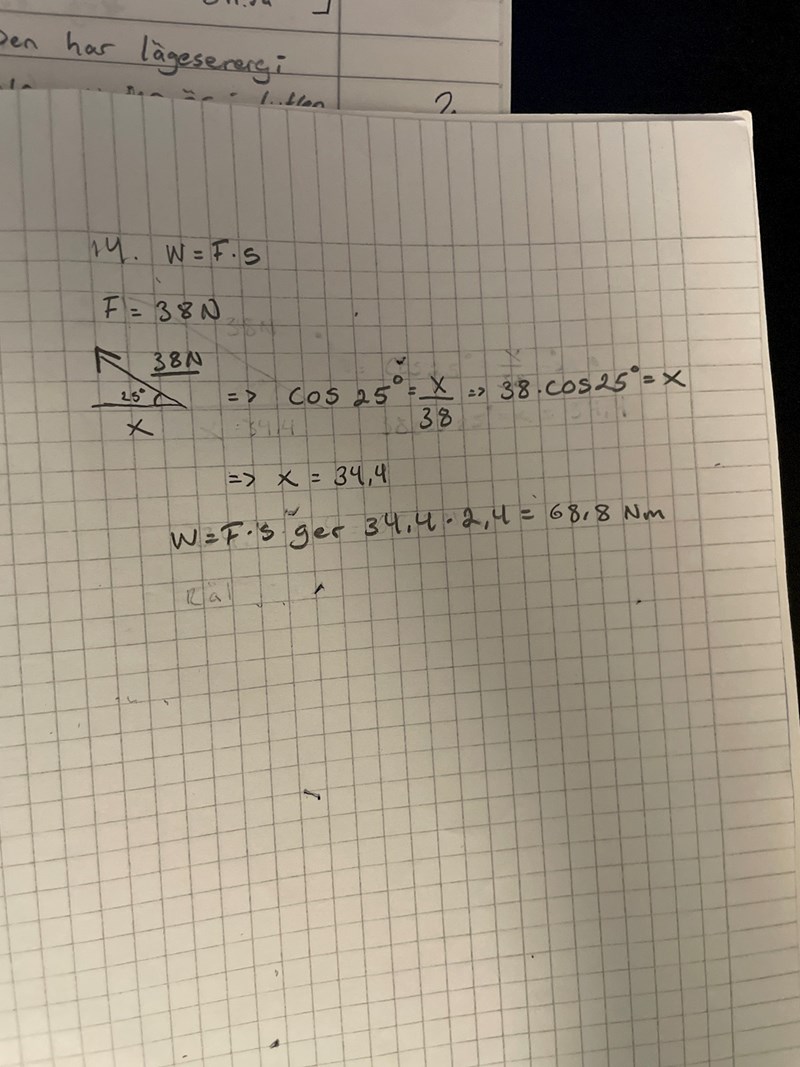 Den har lägesenergi
2
14. W = F·s
F = 38N
38N
25°
x
=> cos 25° = x/38 => 38·cos25° = x
=> x = 34,4
W = F·s ger 34,4·2,4 = 68,8 Nm